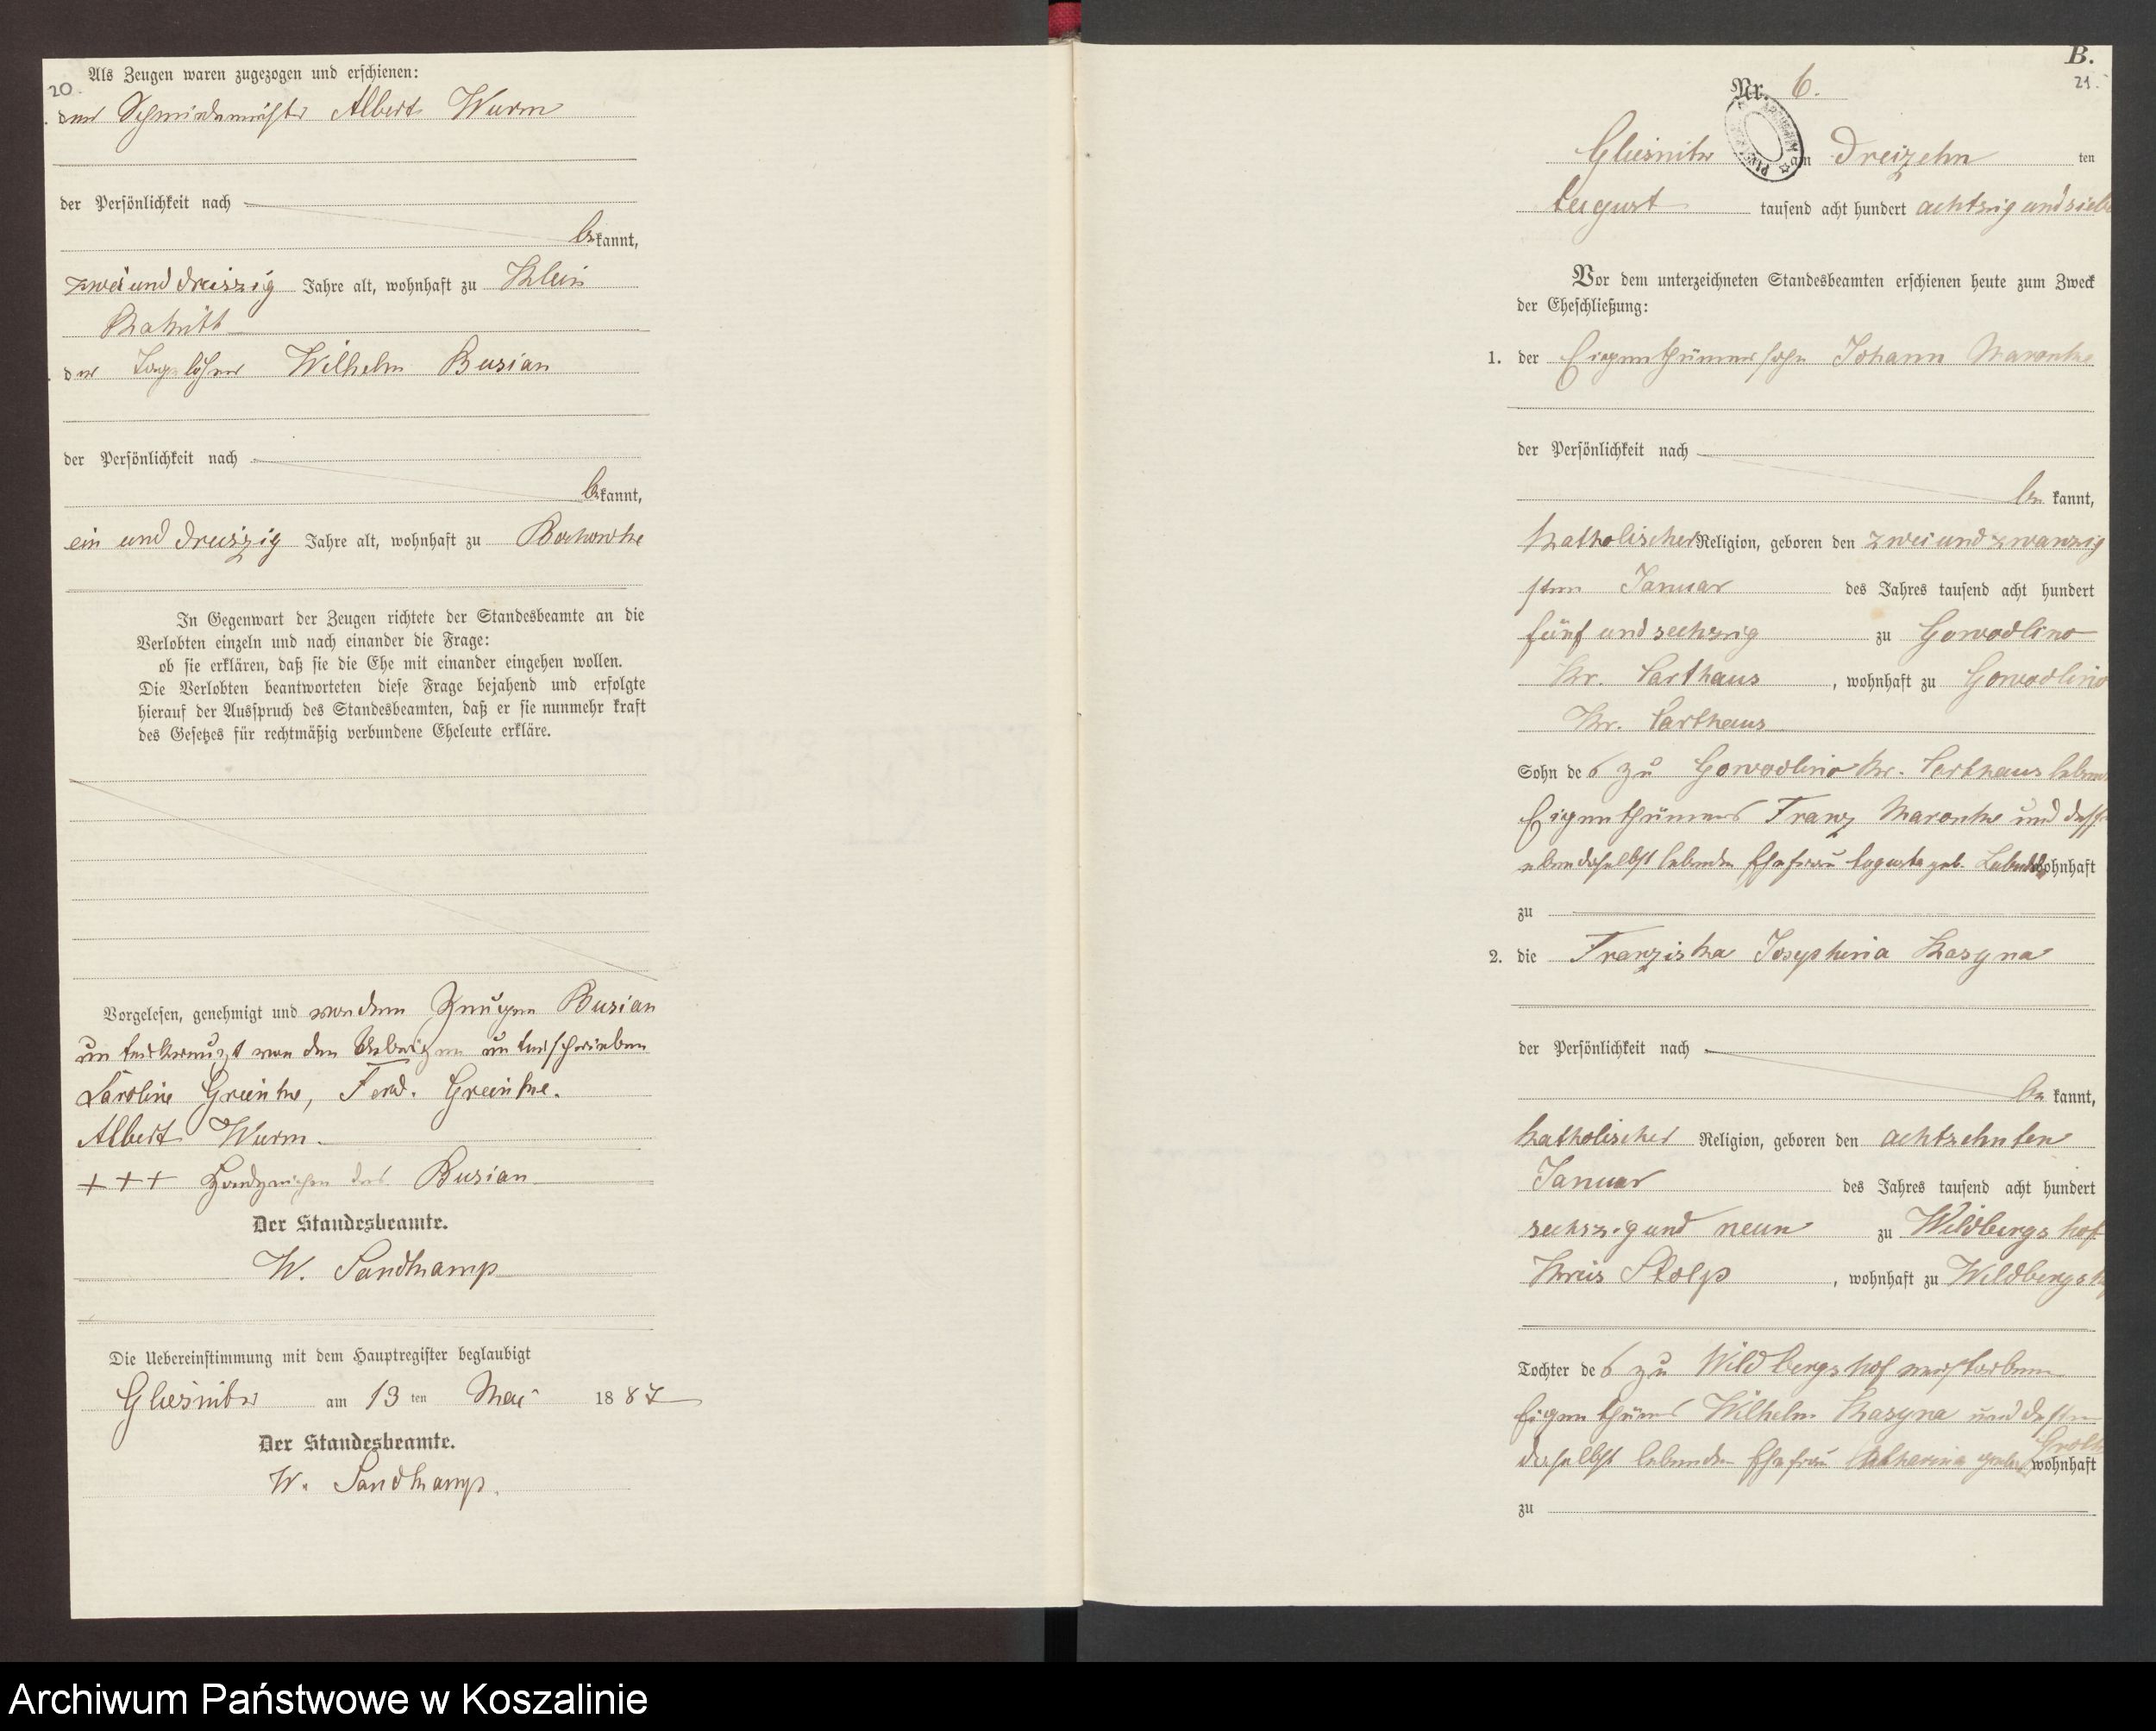 20.
Als Zeugen waren zugezogen und erschienen:
der Schmiedemeister Albert Wurm
der Persönlichkeit nach
be kannt,
zwei und dreiszig Jahre alt, wohnhaft zu Klein
Rakitt
der Tagelöhner Wilhelm Busian
der Persönlichkeit nach
be kannt,
ein und dreiszig Jahre alt, wohnhaft zu Bochowke
In Gegenwart der Zeugen richtete der Standesbeamte an die
Verlobten einzeln und nach einander die Frage:
ob sie erklären, daß sie die Ehe mit einander eingehen wollen.
Die Verlobten beantworteten diese Frage bejahend und erfolgte
hierauf der Ausspruch des Standesbeamten, daß er sie nunmehr kraft
des Gesetzes für rechtmäßig verbundene Eheleute erkläre.
Vorgelesen, genehmigt und von dem Zeugen Busian
unterkreuzt von den Uebrigen unterschrieben
Karoline Greinke, Ferd. Greinke.
Albert Wurm.
+++ Handzeichen des Busian
Der Standesbeamte.
W. Sandkamp
Die Uebereinstimmung mit dem Hauptregister beglaubigt
Gliesnitz am 13 ten Mai 18 87
Der Standesbeamte.
W. Sandkamp.
B.
21.
Nr. 6.
Gliesnitz am Dreizehn ten
August tausend acht hundert achtzig und sieb
Vor dem unterzeichneten Standesbeamten erschienen heute zum Zweck
der Eheschließung:
1. der Eigenthümersohn Johann Maronke
der Persönlichkeit nach
be kannt,
katholischer Religion, geboren den zwei und zwanzig
sten Januar des Jahres tausend acht hundert
fünf und sechzig zu Gowodlino
Kr. Carthaus, wohnhaft zu Gowodlino
Kr. Carthaus
Sohn des zu Gowodlino Kr. Carthaus leben
Eigenthümers Franz Maronke und dess
ebendaselbst lebenden Ehefrau Augusta geb. wohnhaft
zu
2. die Franziska Josephina Kasyna
der Persönlichkeit nach
be kannt,
katholischer Religion, geboren den achtzehnten
Januar des Jahres tausend acht hundert
sechszig und neun zu Wildbergshof
Kreis Stolp, wohnhaft zu Wildbergsh
Tochter des zu Wildbergshof verstorbenen
Eigenthümers Wilhelm Kasyna und dessen
daselbst lebenden Ehefrau Katharina geb. Groth wohnhaft
zu
Archiwum Państwowe w Koszalinie